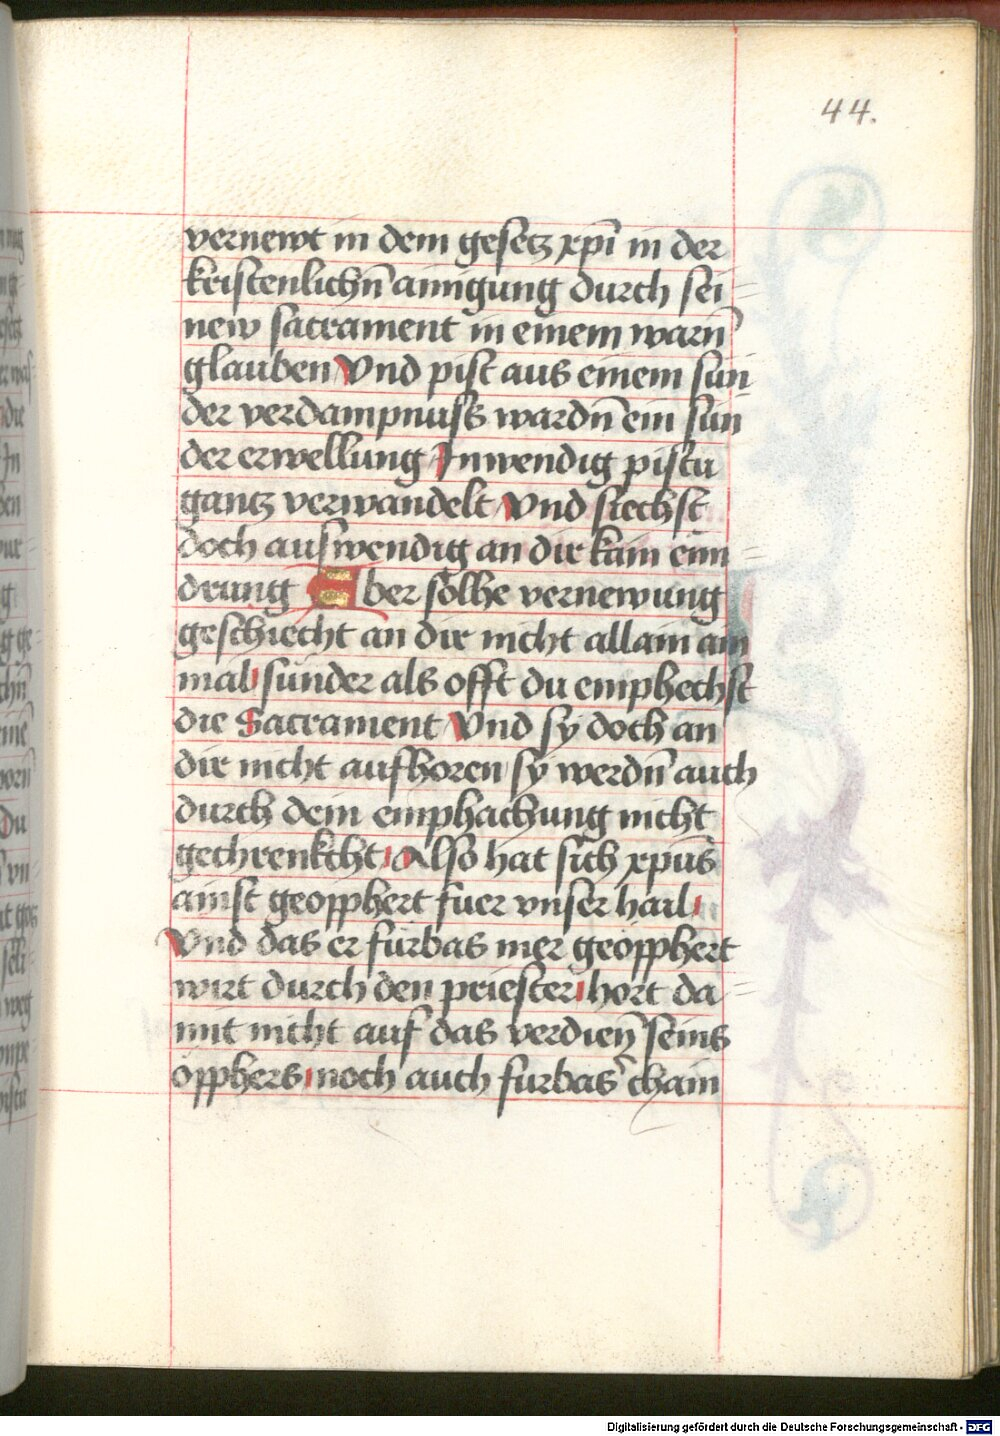 44.
vernewt in dem gesetz xpi in der
kristenlichn̄ ainigung durch sei=
new sacrament in einem warn̄
glauben Vnd pist aus einem sun
der verdampnuss wardn̄ ein sun
der erwellung Inwendig pistu
gantz verwandelt Vnd siechst
doch auswendig an dir kain enn=
drung Aber sölhe vernewung
geschiecht an dir nicht allain ain
mal sunder als offt du emphechst
die Sacrament Vnd sy doch an
dir nicht aufhoren sy werdn̄ auch
durch dein emphachung nicht
gechrenkcht Also hat sich xpūs
ainst geopphert fuer vnser hail
Vnd das er fürbas mer geopphert
wirt durch den priester hort da=
mit nicht auf das verdien̄ seins
opphers noch auch furbas chain
Digitalisierung gefördert durch die Deutsche Forschungsgemeinschaft - DFG